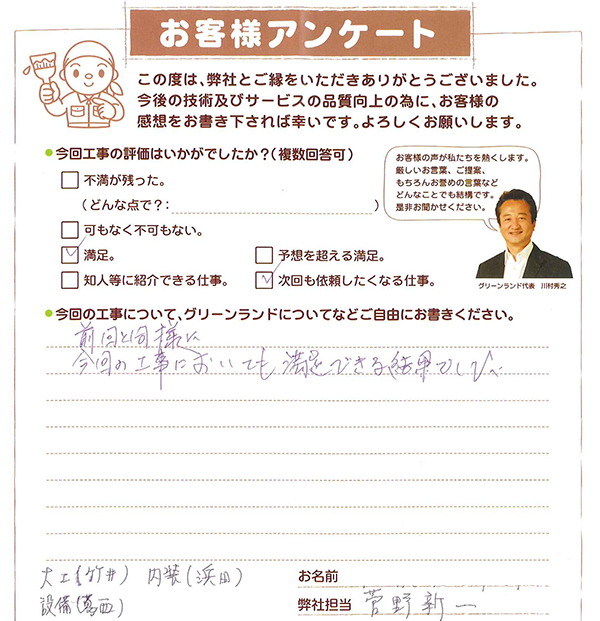 お客様アンケート
この度は、弊社とご縁をいただきありがとうございました。
今後の技術及びサービスの品質向上の為に、お客様の
感想をお書き下されば幸いです。よろしくお願いします。
今回工事の評価はいかがでしたか?(複数回答可)
不満が残った。
(どんな点で?: )
可もなく不可もない。
満足。
予想を超える満足。
知人等に紹介できる仕事。
次回も依頼したくなる仕事。
お客様の声が私たちを熱くします。
厳しいお言葉、ご提案、
もちろんお誉めの言葉など
どんなことでも結構です。
是非お聞かせください。
グリーンランド代表 川村秀之
今回の工事について、グリーンランドについてなどご自由にお書きください。
前回と同様に
今回の工事においても満足できる結果でした
大工(竹井) 内装(浜田)
設備(葛西)
お名前
弊社担当 菅野新一